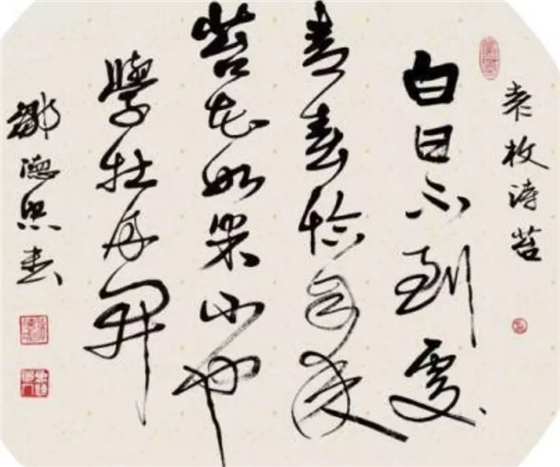 袁枚诗苔
白日不到處
青春恰自来
苔花如米小也
學牡丹開
鄒德忠書